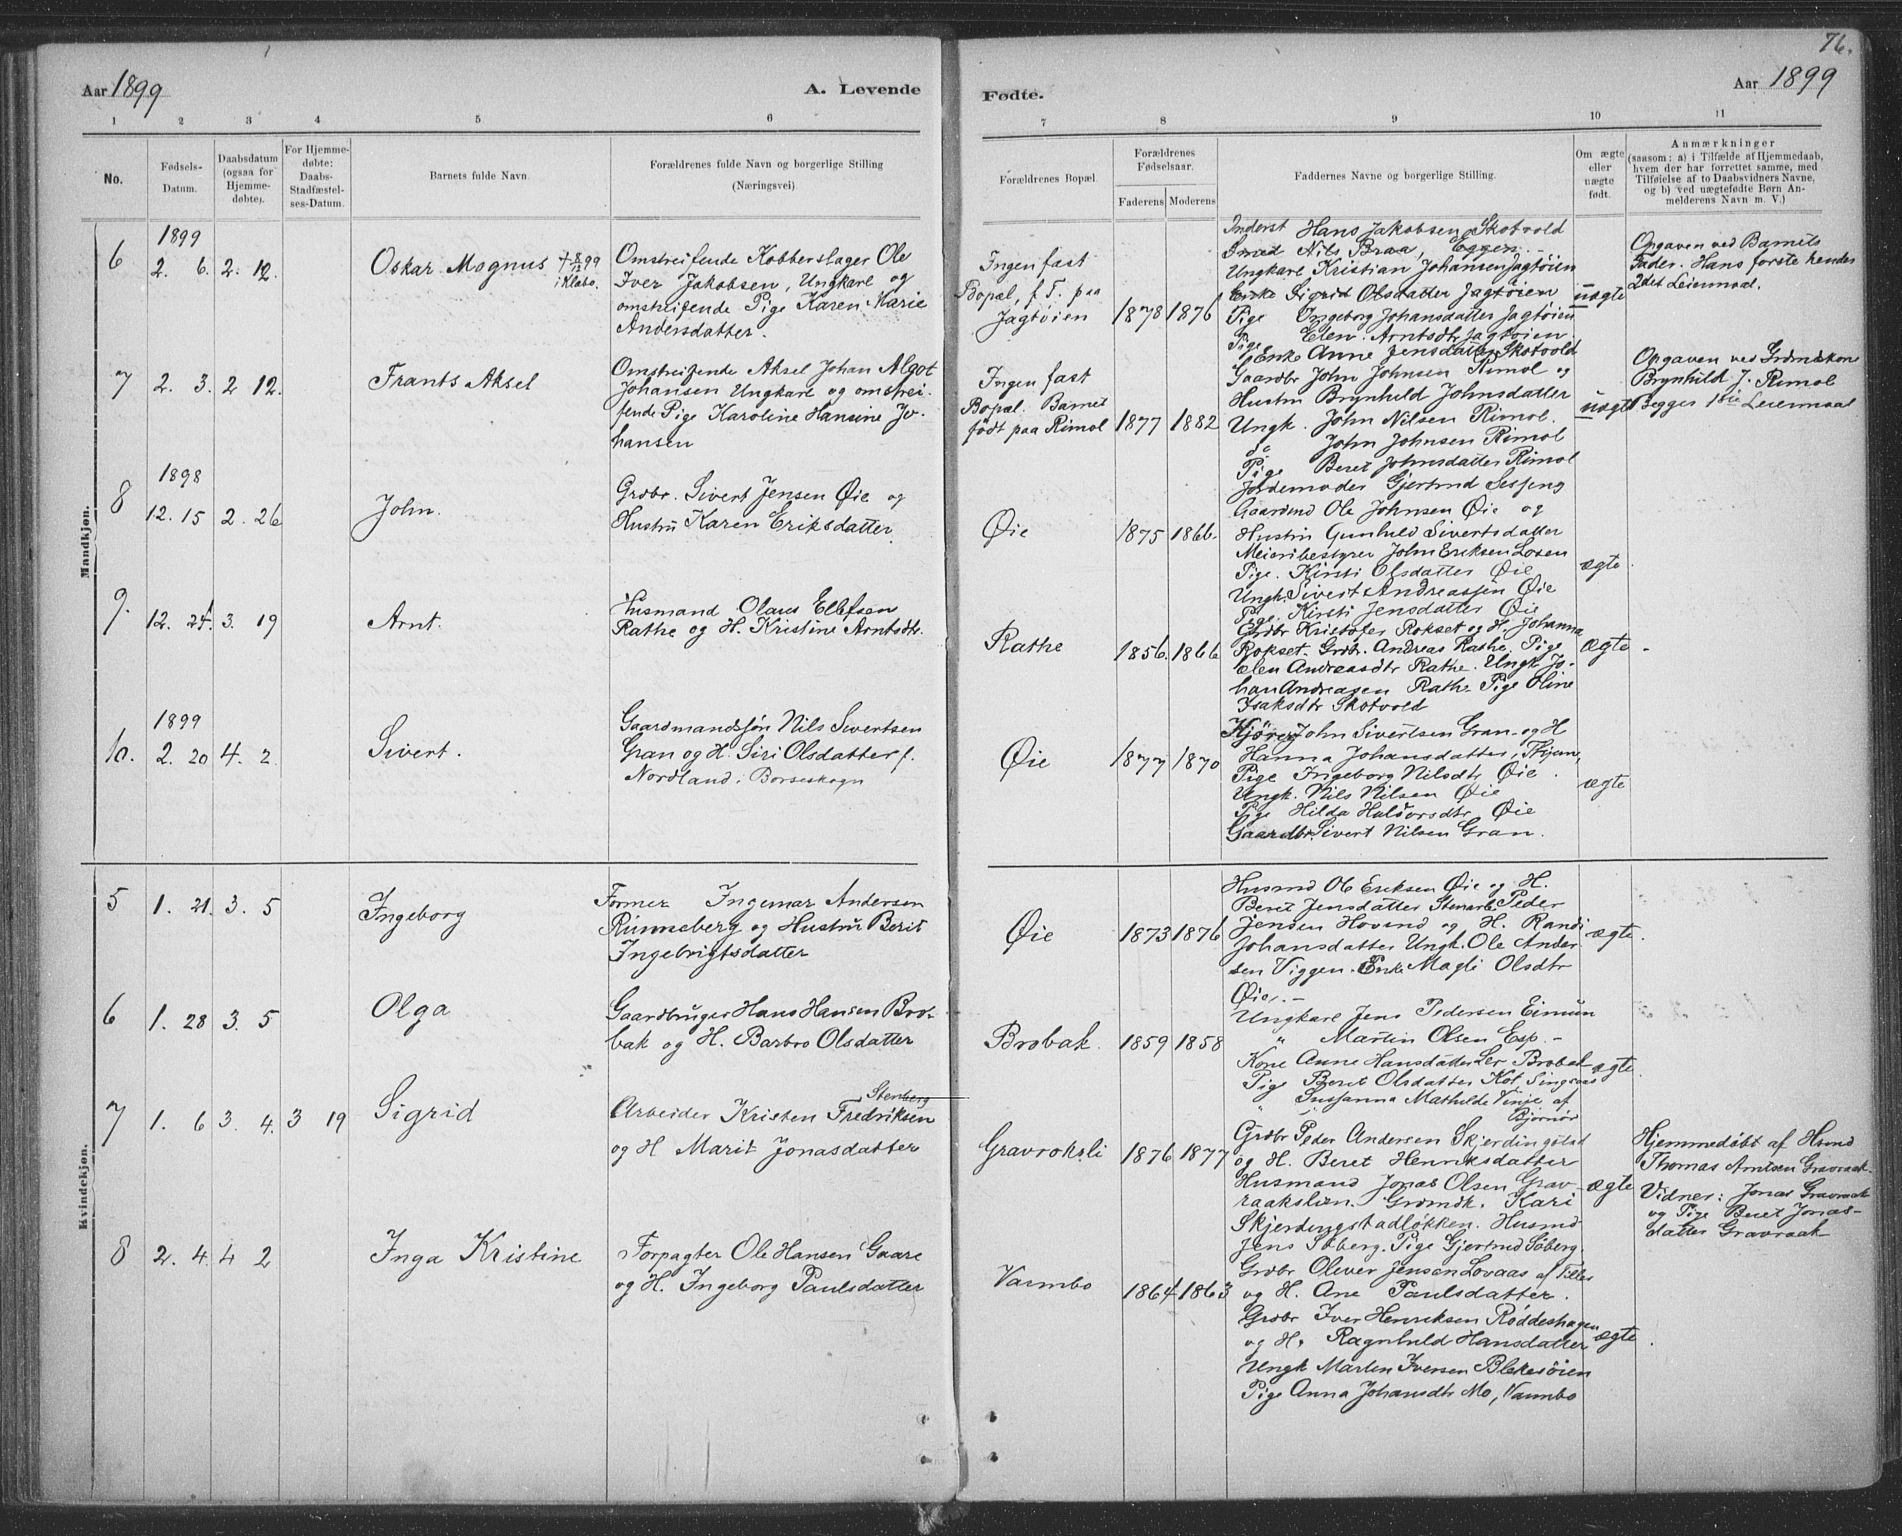 76.
Aar 1899
A. Levende
Fødte.
Aar 1899
1 2 3 4 5 6
7 8 9 10 11
No.
Fødsels-
Datum.
Daabsdatum
(ogsaa for
Hjemme-
døbte).
For Hjemme-
døbte:
Daabs-
Stadfæstel-
ses-Datum.
Barnets fulde Navn.
Forældrenes fulde Navn og borgerlige Stilling
(Næringsvei).
Forældrenes Bopæl.
Forældrenes
Fødselsaar.
Faderens
Moderens
Faddernes Navne og borgerlige Stilling.
Om ægte
eller
uægte
født.
Anmærkninger
(saasom: a) i Tilfælde af Hjemmedaab,
hvem der har forrettet samme, med
Tilføielse af to Daabsvidners Navne,
og b) ved uægtefødte Børn An-
melderens Navn m. V.)
Mandkjøn.
1899
6
2. 6.
2. 12.
Oskar Magnus
† 8/12 99
i Klæbo.
Omstreifende Kobberslager Ole
Iver Jakobsen, Ungkarl og
omstreifende Pige Karen Marie
Andersdatter.
Ingen fast
Bopæl, f. T. paa
Jagtøien
1878
1876
Inderst Hans Jakobsen Skotvold
Smed Nils Braa, Eggen.
Ungkarl Kristian Johansen Jagtøien
Enke Sigrid Olsdatter Jagtøien
Pige Ingeborg Johansdatter Jagtøien
Pige Elen Arntsdtr Jagtøien
uægte
Opgaven ved Barnets
Fader. Hans første hendes
2det Leiermaal.
7
2. 3.
2 12.
Frants Aksel
Omstreifende Aksel Johan Algot
Johansen Ungkarl og omstrei-
fende Pige Karoline Hansine Jo-
hansen
Ingen fast
Bopæl. Barnet
født paa Rimol
1877
1882
Enke Anne Jensdatter Skotvold
Gaardbr John Johnsen Rimol og
Hustru Brynhild Johnsdatter
Ungk. John Nilsen Rimol.
John Johnsen Rimol
Pige Beret Johnsdatter Rimol
Jordemoder Gjertrud
uægte
Opgaven ved Grdmdskone
Brynhild J. Rimol
Begges 1ste Leiermaal
1898
8
12. 15
2. 26
John.
Grdbr. Sivert Jensen Øie og
Hustru Karen Eriksdatter.
Øie
1875
1866.
Gaardmd Ole Johnsen Øie og
Hustru Gunhild Sivertsdatter
Meieribestyrer John Eriksen Losen
Pige. Kirsti Olsdatter Øie
Ungk. Sivert Andreassen Øie
Pige. Kirsti Jensdatter Øie
ægte
9.
12. 24.
3. 19
Arnt.
Husmand Olaus Ellefsen
Rathe og H. Kristine Arntsdtr.
Rathe
1856.
1866
Grdbr Kristofer Rokset og H. Johanna
Rokset. Grdbr. Andreas Rathe, Pige
Elen Andreasdtr Rathe. Ungk. Jo-
han Andreasen Rathe Pige Oline
Isaksdtr Skotvold
ægte
1899
10.
2. 20
4. 2.
Sivert.
Gaardmandssøn Nils Sivertsen
Gran og H. Siri Olsdatter f.
Nordland i Borseskogn
Øie
1877
1870
John Sivertsen Gran og H
Hanna Johansdatter,
Pige Ingeborg Nilsdtr Øie.
Ungk. Nils Nilsen Øie
Pige Hilda Halvorsdtr Øie
Gaardbr. Sivert Nilsen Gran.
ægte
Kvindekjøn.
5
1. 21.
3. 5
Ingeborg
Former Ingemar Andersen
Rinneberg og Hustru Berit
Ingebrigtsdatter
Øie
1873
1876
Husmd Ole Eriksen Øie og H.
Beret Jensdatter Stenarb. Peder
Jensen Hovind og H. Randi
Johansdatter Ungk. Ole Ander
sen Viggen. Enke Magli Olsdtr
Øie. –
ægte.
6
1. 28
3. 5
Olga
Gaardbruger Hans Hansen Bro-
bak og H. Barbro Olsdatter
Brobak.
1859
1858
Ungkarl Jens Pedersen Eimun
" Martin Olsen Esp. –
Kone Anne Hansdatter Ler Brobak
Pige Beret Olsdatter Kot. Singsaas
" Sussanna Mathilde Vinje af
Bjørnør
ægte.
7
1. 6
3. 4.
3 19
Sigrid
Stenberg
Arbeider Kristen Fredriksen
og H Marit Jonasdatter
Gravroksli
1876
1877
Grdbr Peder Andersen Skjerdingstad
og H. Beret Henriksdatter
Husmand Jonas Olsen Grav-
raakslien. Grdmdk. Kari
Skjerdingstadløkken. Husmd
Jens Søberg. Pige Gjertrud Søberg.
ægte
Hjemmedøbt af Husmd
Thomas Arntsen Gravraak
Vidner: Jonas Gravraak
og Pige Beret Jonas-
datter Gravraak
8
2. 4.
4 2
Inga Kristine
Forpagter Ole Hansen Gaare
og H. Ingeborg Paulsdatter
Varmbo
1864
1863
Grdbr Oliver Jensen Lovaas af Tiller
og H. Ane Paulsdatter.
Grdbr Iver Henriksen Røddeshagen
og H. Ragnhild Hansdatter
Ungk Marten Iversen Blekesøien
Pige Anna Johansdtr Mo, Varmbo
ægte.